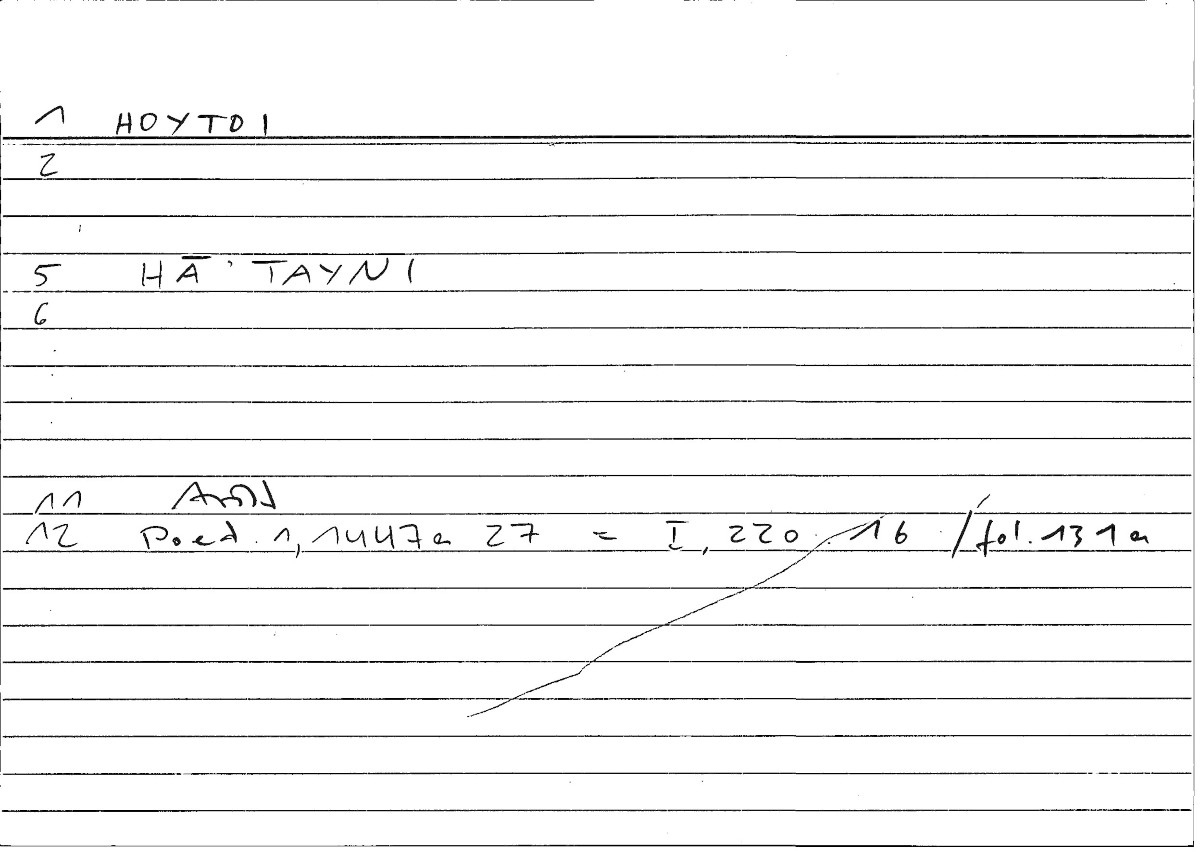 1 HOYTOI
2
5 HĀ' TAYNI
6
11
12 Poed. 1, 1447a 27 = I, 220. 16 / fol. 131a